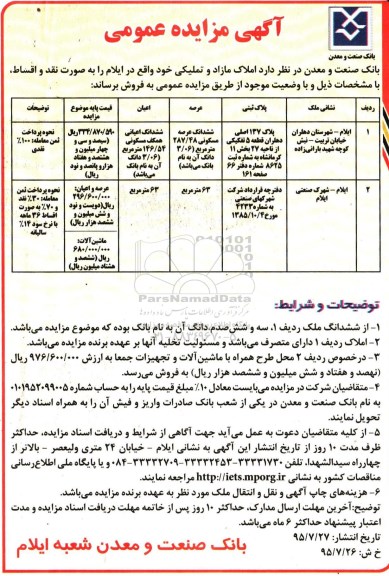 آگهی مزایده عمومی
بانک صنعت و معدن
بانک صنعت و معدن در نظر دارد املاک مازاد و تملیکی خود واقع در ایلام را به صورت نقد و اقساط،
با مشخصات ذیل و با وضعیت موجود از طریق مزایده عمومی به فروش برساند:
ردیف نشانی ملک پلاک ثبتی عرصه اعیان قیمت پایه موضوع مزایده توضیحات
۱
ایلام – شهرستان دهلران
خیابان تربیت – نبش
کوچه شهید بارانی‌زاده
پلاک ۱۳۷ اصلی
دهلران قطعه ۵ تفکیکی
از ناحیه ۲۷ بخش ۱۱
کرمانشاه به شماره ثبت
۸۶۲۵ شماره دفتر ۶۶
صفحه ۱۶۱
ششدانگ عرصه
مسکونی ۲۸۷/۴۸
مترمربع (۳/۰۶
دانگ آن به نام
بانک می‌باشد)
ششدانگ اعیانی
همکف مسکونی
۱۴۶/۵۴ مترمربع
(۳/۰۶ دانگ
آن به نام بانک
می‌باشد)
۳۳۴/۸۷۰/۵۹۰ ریال
(سیصد و سی و
چهار میلیون و
هشتصد و هفتاد
هزار و پانصد و نود
ریال)
نحوه پرداخت
ثمن معامله: ۱۰۰٪
نقدی
۲
ایلام – شهرک صنعتی
ایلام
دفترچه قرارداد شرکت
شهرکهای صنعتی
به شماره ۴۲۳۳
مورخ ۱۳۸۵/۱۰/۴
۶۳ مترمربع
۶۳ مترمربع
عرصه و اعیان:
۲۹۶/۶۰۰/۰۰۰
ریال (دویست و نود
و شش میلیون و
ششصد هزار ریال)
ماشین آلات:
۶۸۰/۰۰۰/۰۰۰
ریال (ششصد و
هشتاد میلیون ریال)
نحوه پرداخت ثمن
معامله: ۳۰٪ نقد
و ۷۰٪ به صورت
اقساط ۳۶ ماهه
با نرخ سود ۱۴٪
سالیانه
توضیحات و شرایط:
۱- از ششدانگ ملک ردیف ۱، سه و شش‌صدم دانگ آن به نام بانک بوده که موضوع مزایده می‌باشد.
۲- املاک ردیف ۱ دارای متصرف می‌باشد و مسئولیت تخلیه آنها بر عهده برنده مزایده می‌باشد.
۳- درخصوص ردیف ۲ محل طرح همراه با ماشین‌آلات و تجهیزات جمعا به ارزش ۹۷۶/۶۰۰/۰۰۰ ریال
(نهصد و هفتاد و شش میلیون و ششصد هزار ریال) به فروش می‌رسد.
۴- متقاضیان شرکت در مزایده می‌بایست معادل ۱۰٪ مبلغ قیمت پایه را به حساب شماره ۰۱۰۱۹۵۲۰۹۹۰۰۵
به نام بانک صنعت و معدن در یکی از شعب بانک صادرات واریز و فیش آن را به همراه اسناد دیگر
تحویل نمایند.
۵- از کلیه متقاضیان دعوت به عمل می‌آید جهت آگاهی از شرایط و دریافت اسناد مزایده، حداکثر
ظرف مدت ۱۰ روز از تاریخ انتشار این آگهی به نشانی ایلام – خیابان ۲۴ متری ولیعصر – بالاتر از
چهارراه سیدالشهدا، تلفن ۳۳۳۳۱۷۳۰-۳۳۳۳۲۴۵۳-۳۳۳۳۲۷۰۹-۰۸۴ و یا پایگاه ملی اطلاع‌رسانی
مناقصات کشور به نشانی http://iets.mporg.ir مراجعه نمایند.
۶- هزینه‌های چاپ آگهی و نقل و انتقال ملک مورد نظر به عهده برنده مزایده می‌باشد.
توضیح: آخرین مهلت ارسال مدارک، حداکثر ۱۰ روز پس از خاتمه مهلت دریافت اسناد مزایده و مدت
اعتبار پیشنهاد حداکثر ۶ ماه می‌باشد.
تاریخ انتشار: ۹۵/۷/۲۷
خ ش: ۹۵/۷/۲۶
بانک صنعت و معدن شعبه ایلام